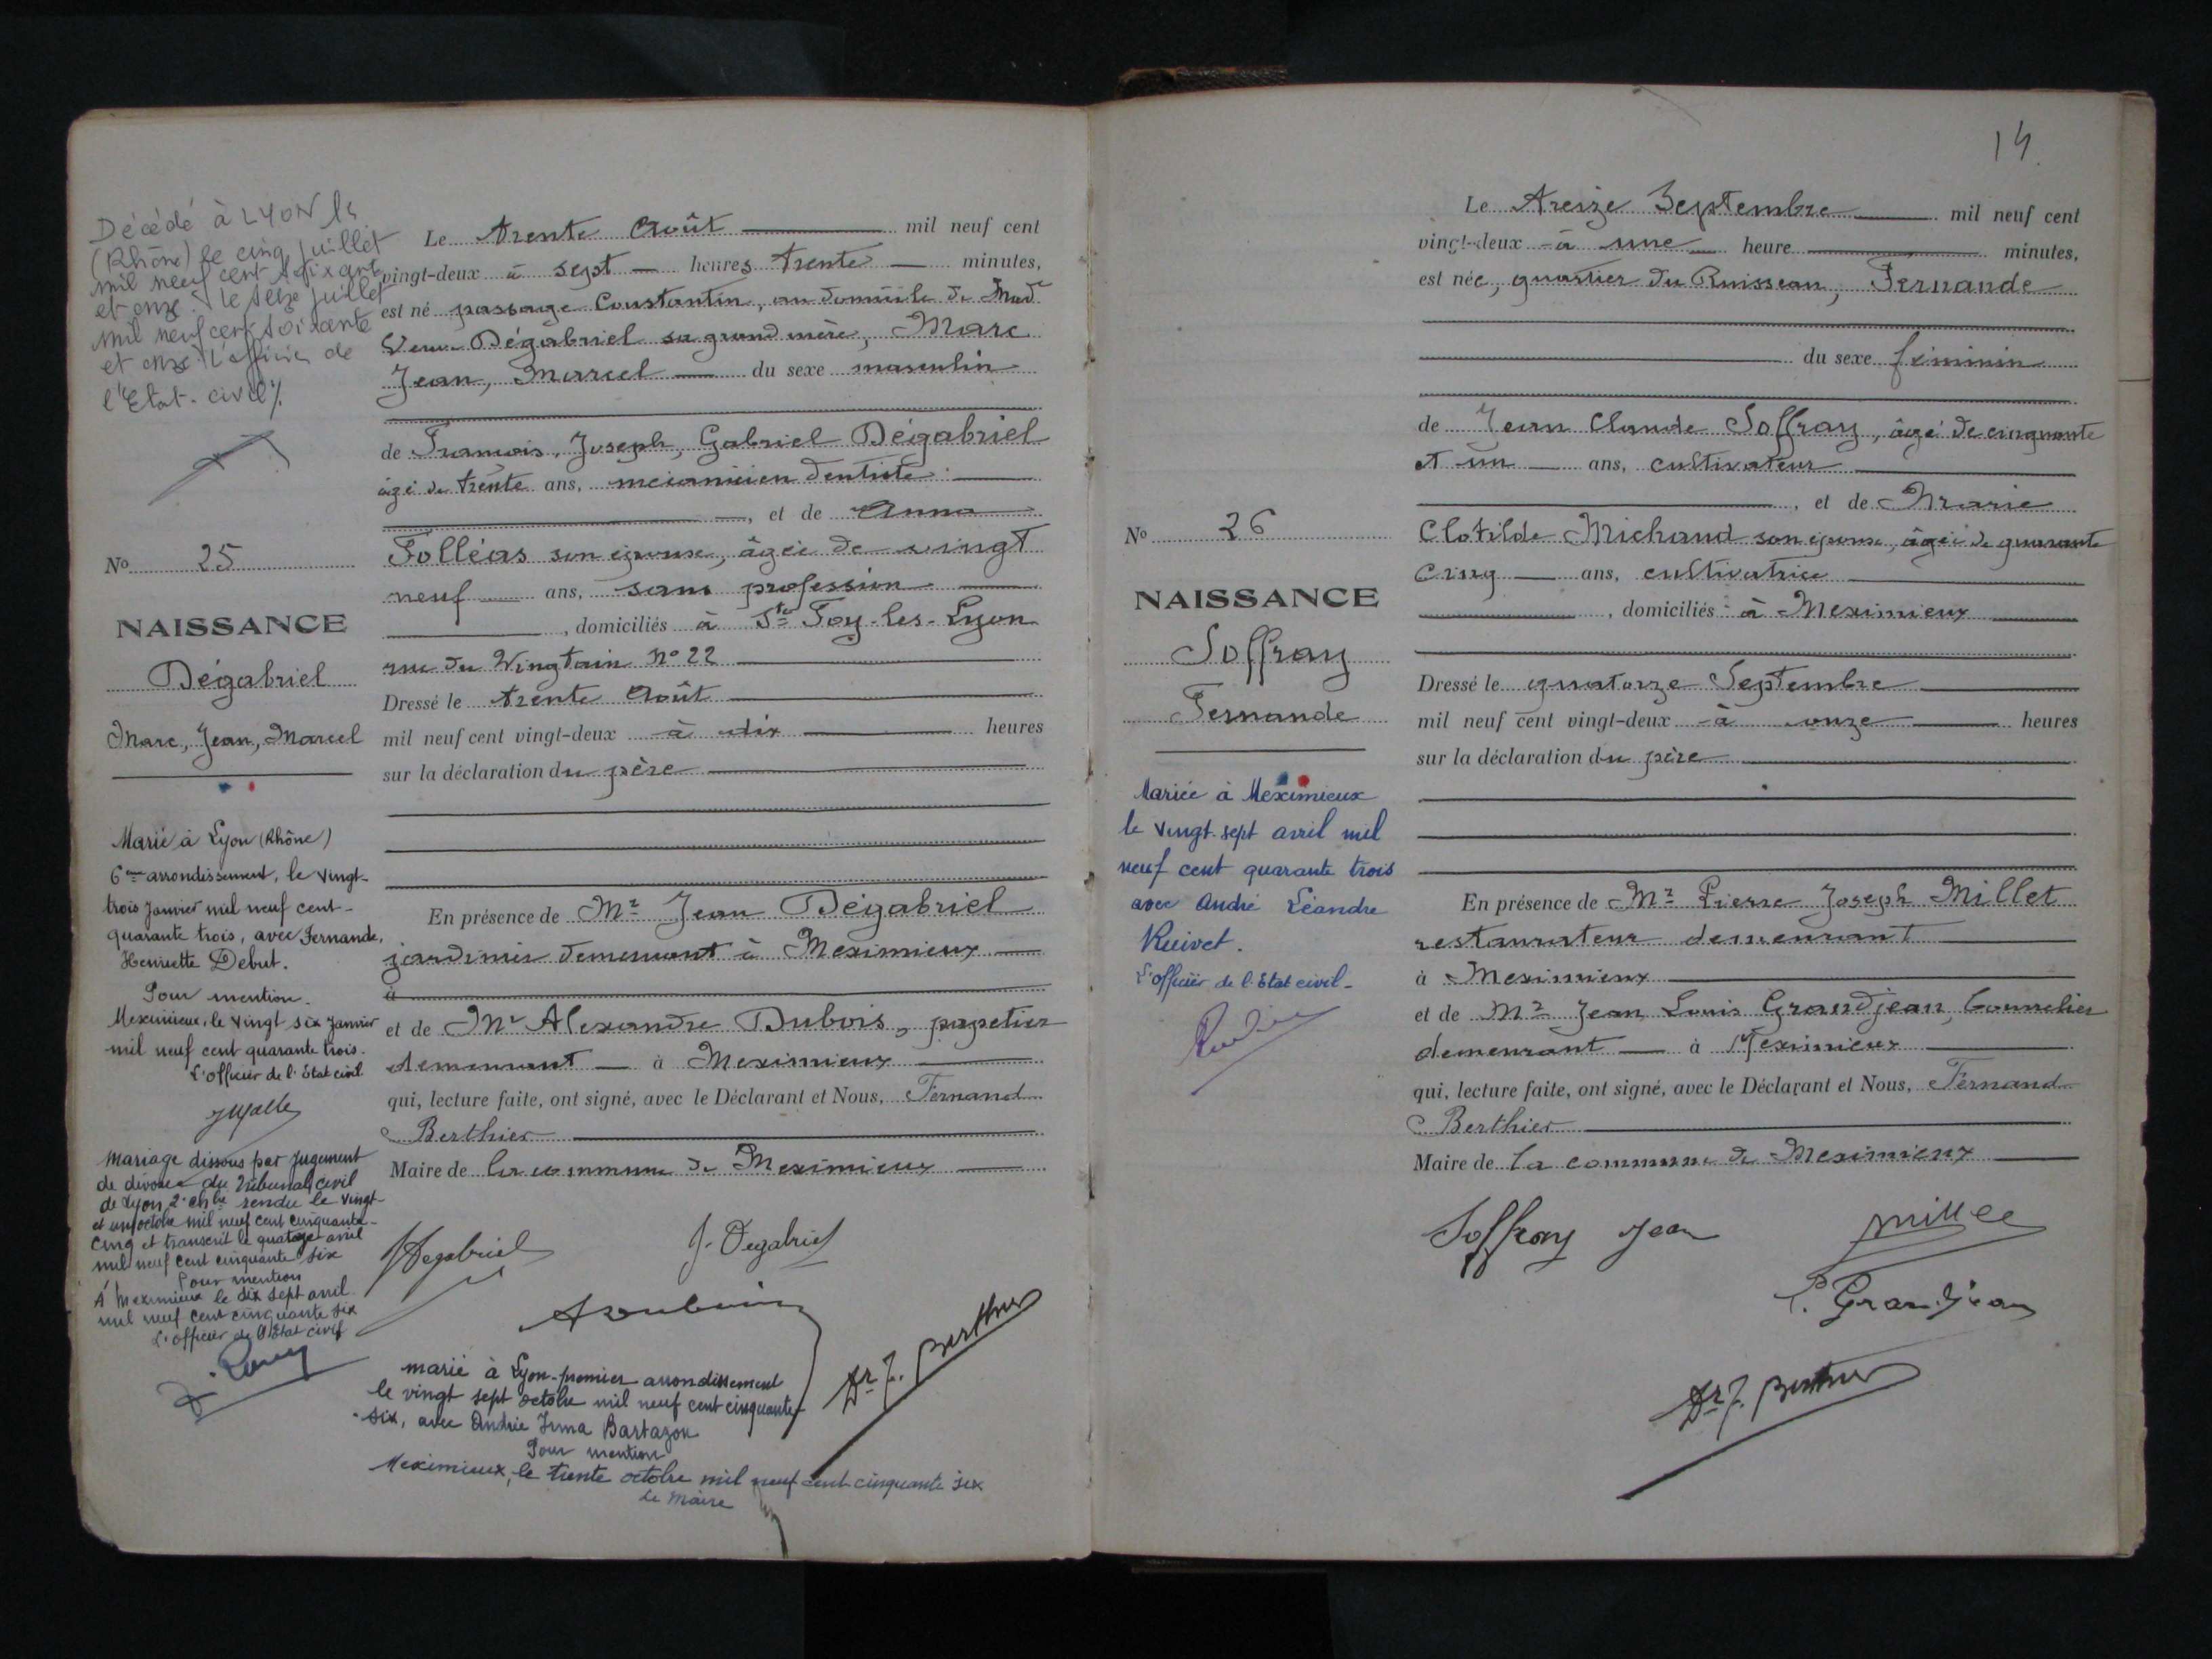 Décédé à LYON
(Rhône) le cinq juillet
mil neuf cent soixante
et onze. le seize juillet
mil neuf cent soixante
et onze. L'officier de
l'Etat-civil %.
No 25
NAISSANCE
Dégabriel
Marc, Jean, Marcel
Marié à Lyon (Rhône)
6ème arrondissement, le vingt-
trois Janvier mil neuf cent-
quarante trois, avec Fernande,
Henriette Debut.
Pour mention.
Meximieux, le vingt six Janvier
mil neuf cent quarante trois.
L'officier de l'Etat civil.
Mariage dissous par jugement
de divorce du Tribunal civil
de Lyon 2e chbre rendu le vingt-
et un octobre mil neuf cent cinquante-
cinq et transcrit le quatorze avril
mil neuf cent cinquante six
Pour mention
A Meximieux le dix sept avril
mil neuf cent cinquante six
L'officier de l'Etat civil
Le trente Août mil neuf cent
vingt-deux à sept heures trente minutes,
est né passage Constantin, au domicile de Mad.
Veuve Dégabriel sa grand mère, Marc
Jean, Marcel du sexe masculin
de François, Joseph, Gabriel Dégabriel
âgé de trente ans, mécanicien dentiste
, et de Anna
Folléas son épouse, âgée de vingt
neuf ans, sans profession
, domiciliés à Ste Foy-les-Lyon
rue du Vingtain No 22
Dressé le trente Août
mil neuf cent vingt-deux à dix heures
sur la déclaration du père
En présence de Mr Jean Dégabriel
jardinier demeurant à Meximieux
à
et de Mr Alexandre Dubois, papetier
demeurant à Meximieux
qui, lecture faite, ont signé, avec le Déclarant et Nous, Fernand
Berthier
Maire de la commune de Meximieux
Degabriel J. Degabriel
Dr F. Berthier
marié à Lyon-premier arrondissement
le vingt sept octobre mil neuf cent cinquante-
six, avec Andrée Irma Bartazon
Pour mention
Meximieux, le trente octobre mil neuf cent cinquante six
Le Maire
14
No 26
NAISSANCE
Soffray
Fernande
Mariée à Meximieux
le vingt-sept avril mil
neuf cent quarante trois
avec André Léandre
Ruivet.
L'officier de l'Etat civil-
Le Treize Septembre mil neuf cent
vingt-deux à une heure minutes,
est née, quartier du Ruisseau, Fernande
du sexe féminin
de Jean Claude Soffray, âgé de cinquante
et un ans, cultivateur
, et de Marie
Clotilde Michaud son épouse, âgée de quarante
cinq ans, cultivatrice
, domiciliés à Meximieux
Dressé le quatorze Septembre
mil neuf cent vingt-deux à onze heures
sur la déclaration du père
En présence de Mr Pierre Joseph Millet
restaurateur demeurant
à Meximieux
et de Mr Jean Louis Grandjean, bourrelier
demeurant à Meximieux
qui, lecture faite, ont signé, avec le Déclarant et Nous, Fernand
Berthier
Maire de la commune de Meximieux
Soffray Jean Millet
Grandjean
Dr F. Berthier